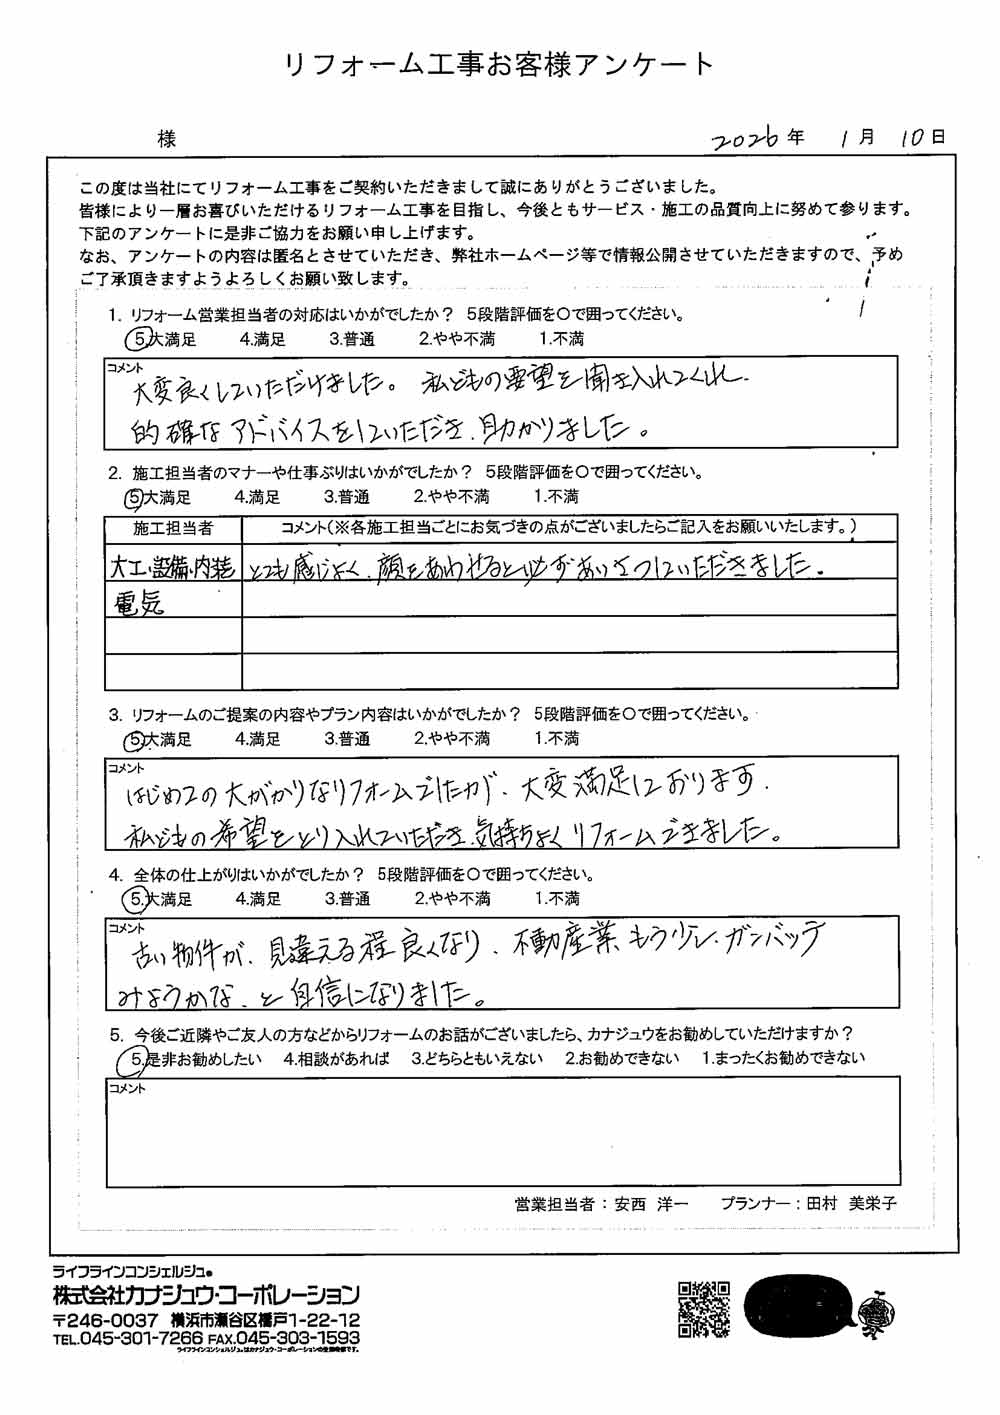 リフォーム工事お客様アンケート
様 2026年 1月 10日
この度は当社にてリフォーム工事をご契約いただきまして誠にありがとうございました。
皆様により一層お喜びいただけるリフォーム工事を目指し、今後ともサービス・施工の品質向上に努めて参ります。
下記のアンケートに是非ご協力をお願い申し上げます。
なお、アンケートの内容は匿名とさせていただき、弊社ホームページ等で情報公開させていただきますので、予め
ご了承頂きますようよろしくお願い致します。
1. リフォーム営業担当者の対応はいかがでしたか？ 5段階評価を○で囲ってください。
5.大満足 4.満足 3.普通 2.やや不満 1.不満
コメント
大変良くしていただけました。私どもの要望を聞き入れてくれ、
的確なアドバイスをしていただき、助かりました。
2. 施工担当者のマナーや仕事ぶりはいかがでしたか？ 5段階評価を○で囲ってください。
5.大満足 4.満足 3.普通 2.やや不満 1.不満
施工担当者 コメント(※各施工担当ごとにお気づきの点がございましたらご記入をお願いいたします。)
大工、設備、内装 とても感じよく、顔をあわせると必ずあいさつしていただきました。
電気
3. リフォームのご提案の内容やプラン内容はいかがでしたか？ 5段階評価を○で囲ってください。
5.大満足 4.満足 3.普通 2.やや不満 1.不満
コメント
はじめての大がかりなリフォームでしたが、大変満足しております。
私どもの希望をとり入れていただき、気持ちよくリフォームできました。
4. 全体の仕上がりはいかがでしたか？ 5段階評価を○で囲ってください。
5.大満足 4.満足 3.普通 2.やや不満 1.不満
コメント
古い物件が、見違える程良くなり、不動産業、もう少し、ガンバッテ
みようかな、と自信になりました。
5. 今後ご近隣やご友人の方などからリフォームのお話がございましたら、カナジュウをお勧めしていただけますか？
5.是非お勧めしたい 4.相談があれば 3.どちらともいえない 2.お勧めできない 1.まったくお勧めできない
コメント
営業担当者：安西 洋一 プランナー：田村 美栄子
ライフラインコンシェルジュ®
株式会社カナジュウ・コーポレーション
〒246-0037 横浜市瀬谷区橋戸1-22-12
TEL.045-301-7266 FAX.045-303-1593
ライフラインコンシェルジュ®はカナジュウ・コーポレーションの登録商標です。